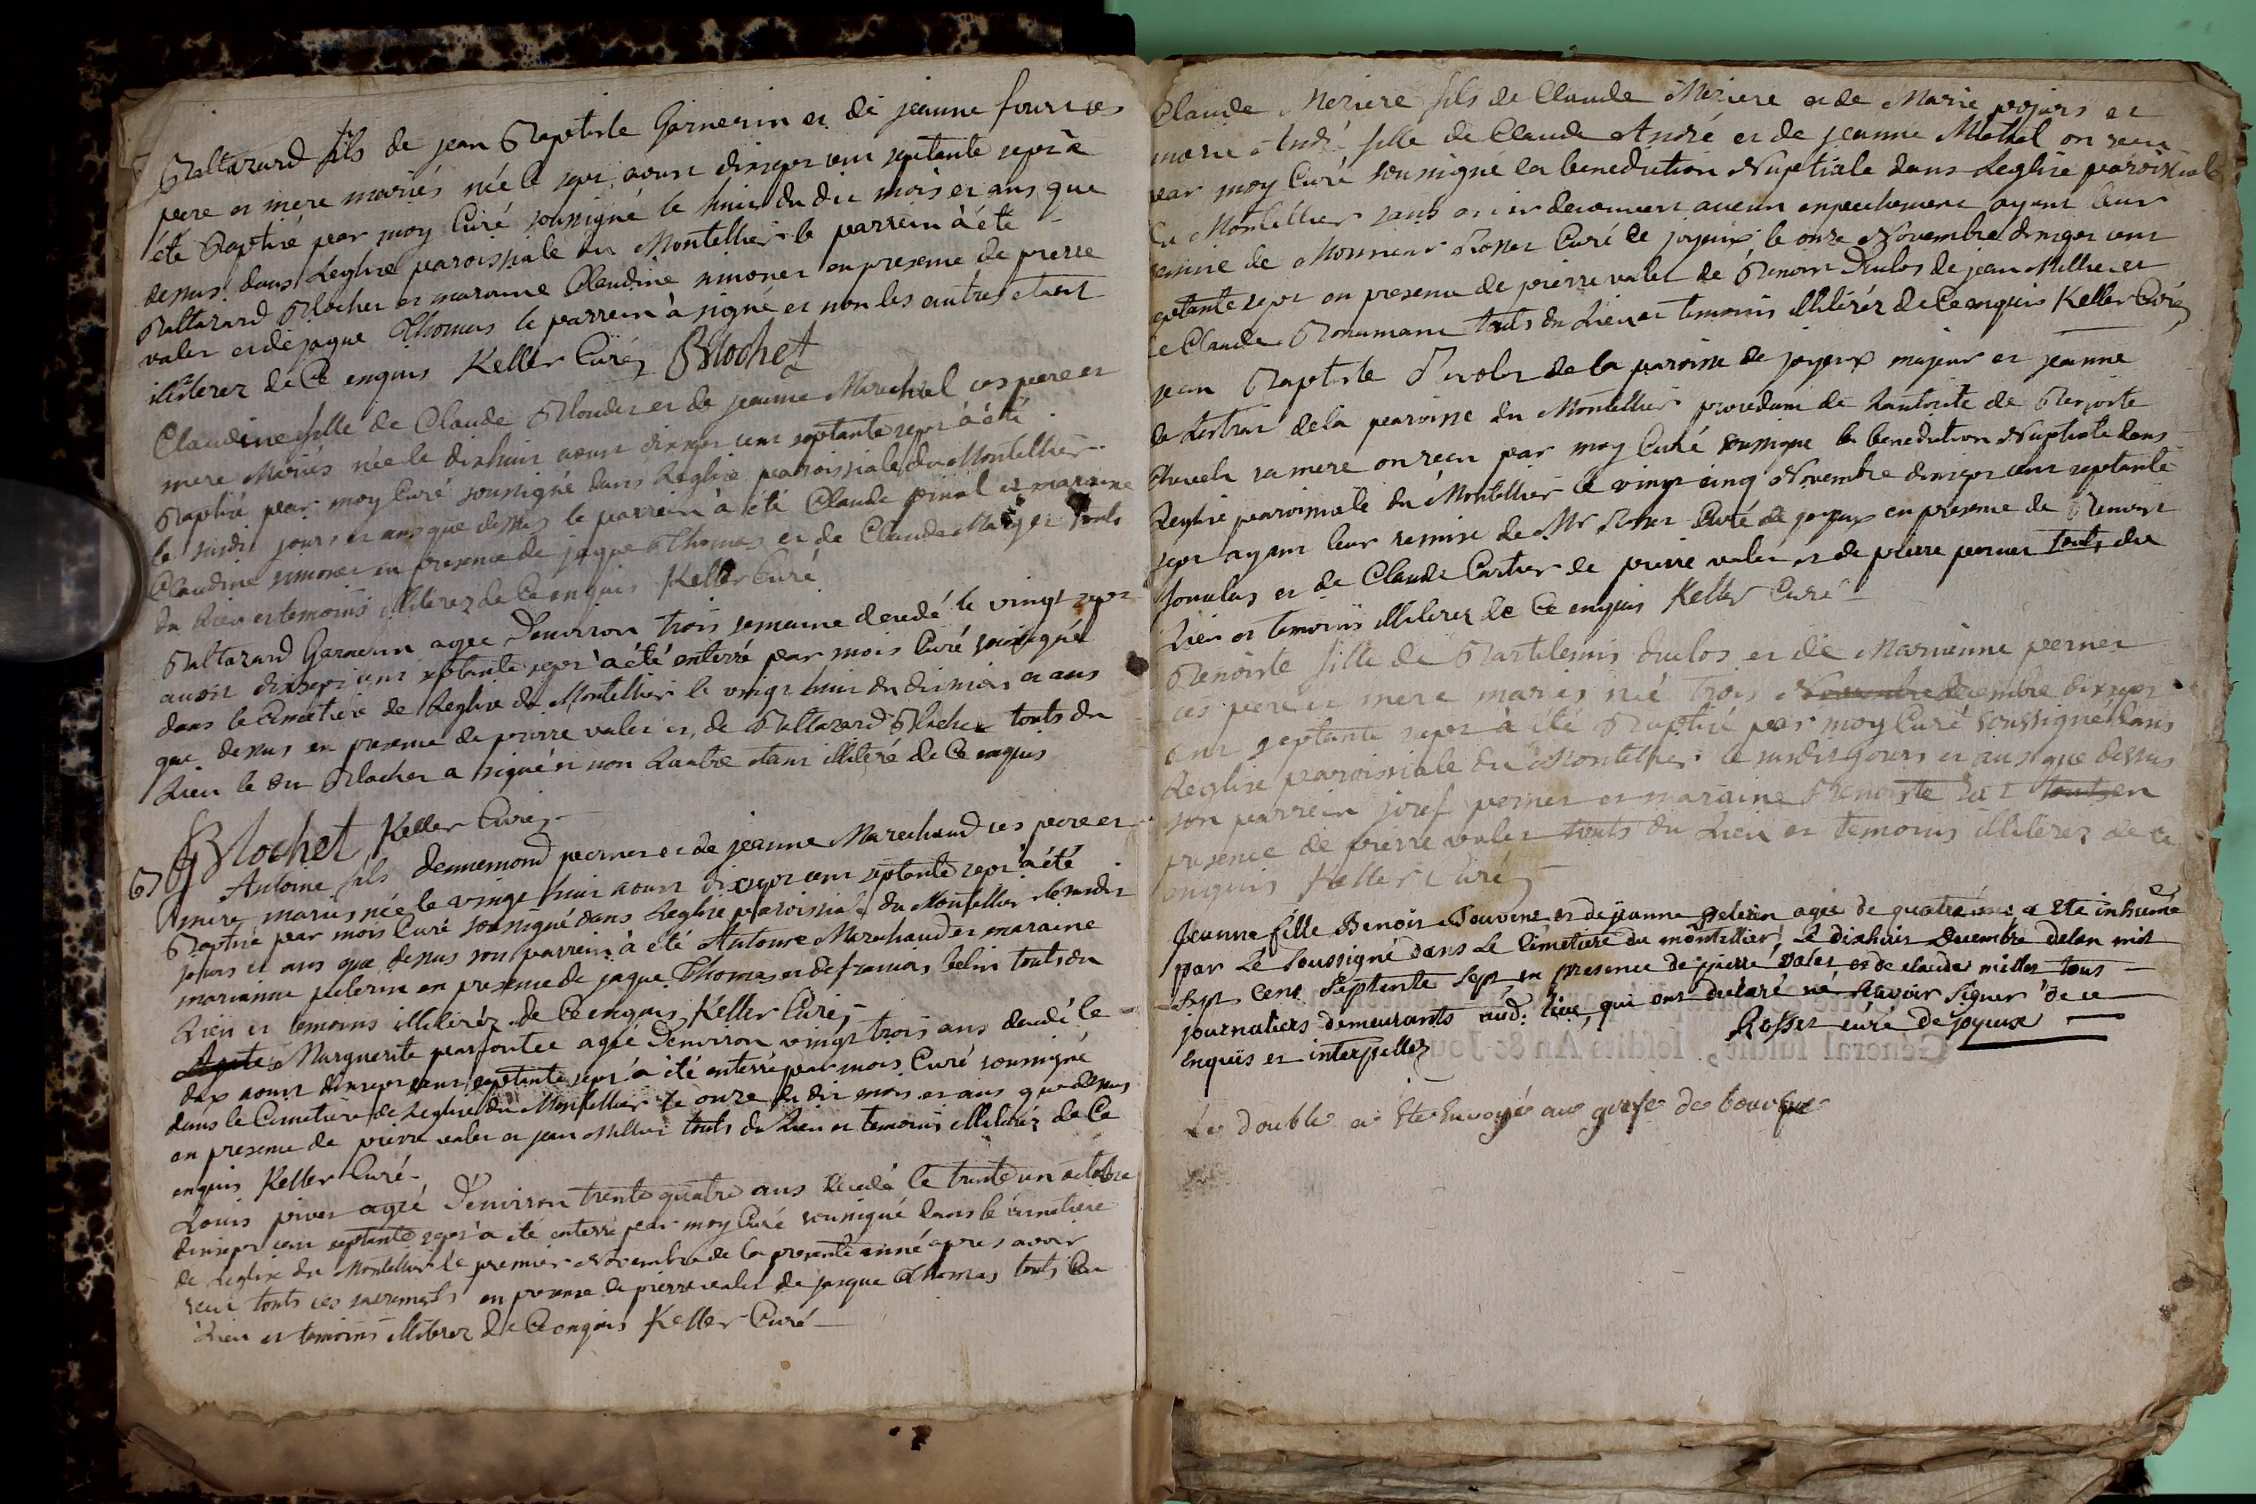 Baltazard fils de jean Baptiste Garnerin et de jeanne
pere et mere mariés née le sept aoust dixsept cent septante sept à
été Baptisé par moy Curé soussigné le huit du dit mois et ans que
dessus dans Leglise paroissiale du Montellier le parrein à été
Baltazard Blochet et maraine Claudine simonet en presence de pierre
valet et de jaque Thomas le parrein à signé et non les autres etant
illiterez de Ce enquis Keller Curé Blochet
Claudine fille de Claude Blondet et de jeanne Marechal ces pere et
mere Mariés née le dixhuit aoust dixsept cent septante sept à été
Baptisé par moy Curé soussigné dans Leglise paroissiale du Montellier
le susdit jours et ans que dessus le parrein à été Claude pinal et maraine
Claudine simonet en presence de jaque Thomas et de Claude touts
du Lieu et temoins illiterez de Ce enquis Keller Curé
Baltazard Garnerin agee D'environ trois semaine decedé le vingt sept
aoust dixsept cent septante sept à été enterré par mois Curé soussigné
dans le Cimetiere de Leglise du Montellier le vingt huit du dit mois et ans
que dessus en presence de pierre valet et de Baltazard Blochet touts du
Lieu le dit Blochet a signé et non Lautre etant illiteré de Ce enquis
Blochet Keller Curé
B Antoine fils Dennemond perner et de jeanne Marechaud ces pere et
mere mariés née le vingt huit aoust dixsept cent septante sept à été
Baptisé par mois Curé soussigné dans Leglise paroissiale du Montellier le susdit
jours et ans que dessus son parrein à été Antoine Marechaud et maraine
marianne pelerin en presence de jaque Thomas et de francois belin touts du
Lieu et temoins illiterez de Ce enquis Keller Curé
Marguerite agée D'environ vingt trois ans decedé le
dix aoust dixsept cent septante sept à été enterré par mois Curé soussigné
dans le Cimetiere de Leglise du Montellier le onze du dit mois et ans que dessus
en presence de pierre valet et jean Millier touts du Lieu et temoins illiterez de Ce
enquis Keller Curé
Louis pivet agée D'environ trente quatre ans decedé le trente un octobre
dixsept cent septante sept à été enterré par moy Curé soussigné dans le cimetiere
de Leglise du Montellier le premier Novembre de la presente anné apres avoir
recut touts ces sacrements en presence de pierre valet de jacque Thomas touts du
Lieu et temoins illiterez de Ce enquis Keller Curé
Claude Meziere fils de Claude Meziere et de Marie et
marie André fille de Claude André et de jeanne on recu
par moy Curé soussigné la benediction Nuptiale dans Leglise paroissiale
du Montellier sans avoir decouvert aucun enpechement ayant leur
remise de Monsieur Rosset Curé de joyeux le onze Novembre dixsept cent
septante sept en presence de pierre valet de Benoit Duclos de jean Millier et
de Claude touts du Lieu et temoins illiterés de Ce enquis Keller Curé
jean Baptiste de la paroisse de joyeux majeur et jeanne
de la paroisse du Montellier procedant de Lautorité de Benoite
sa mere on recu par moy Curé soussigné la benediction Nuptiale dans
Leglise paroissiale du Montellier le vingt cinq Novembre dixsept cent septante
sept ayant leur remise de Mr Rosset Curé de joyeux en presence de Benoit
et de Claude Cartier de pierre valet et de pierre perner touts du
Lieu et temoins illiterez de Ce enquis Keller Curé
Benoite fille de Bartelemis duclos et de Marianne perner
ces pere et mere mariés née trois Novembre decembre dixsept
cent septante sept à été Baptisé par moy Curé soussigné dans
Leglise paroissiale du Montellier le susdit jours et ans que dessus
son parrein josef perner et maraine Benoite touts en
presence de pierre valet touts du Lieu et temoins illiterez de Ce
enquis Keller Curé
Jeanne fille Benoit Jouvent et de jeanne pelerin agée de quatre ans a Eté inhumée
par Le soussigné dans Le Cimetiere du montellier, Le dixhuit Decembre de lan mil
sept cent septante sept en presence de pierre valet et de claude millet tous
journaliers demeurants aud. lieu, qui ont declaré ne sçavoir signer de ce
Enquis et interpellez Rosset curé de joyeux
Le double a Eté Envoyé au grefe de bourg